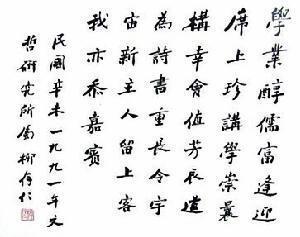 學業醇儒富逢迎
席上珍講學崇曩
構幸會值芳辰道
為詩書重長令宇
宙新主人留上客
我亦忝嘉賓
民國辛未一九九一年文
哲研究所柳存仁